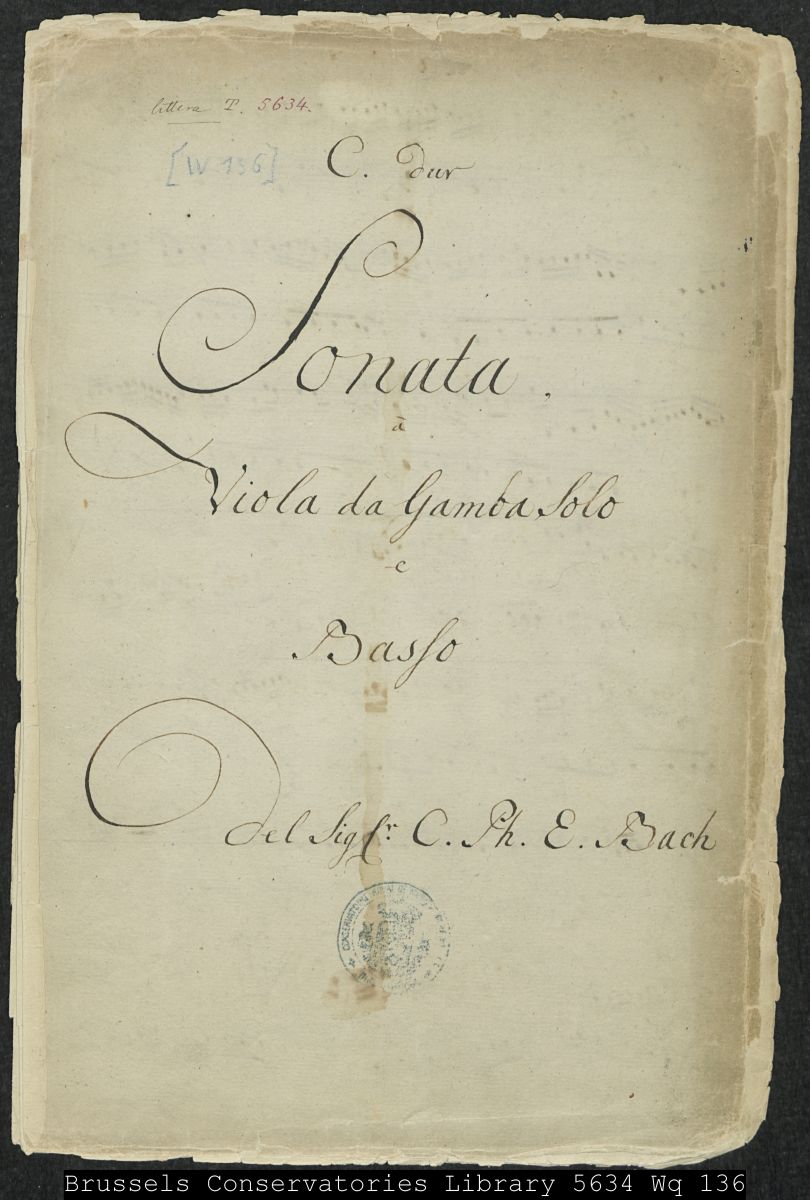 littera T. 5634.
[W 136]
C. dur
Sonata.
à
Viola da Gamba Solo
e
Basso
Del Sigr. C. Ph. E. Bach
CONSERVATOIRE
Brussels Conservatories Library 5634 Wq 136